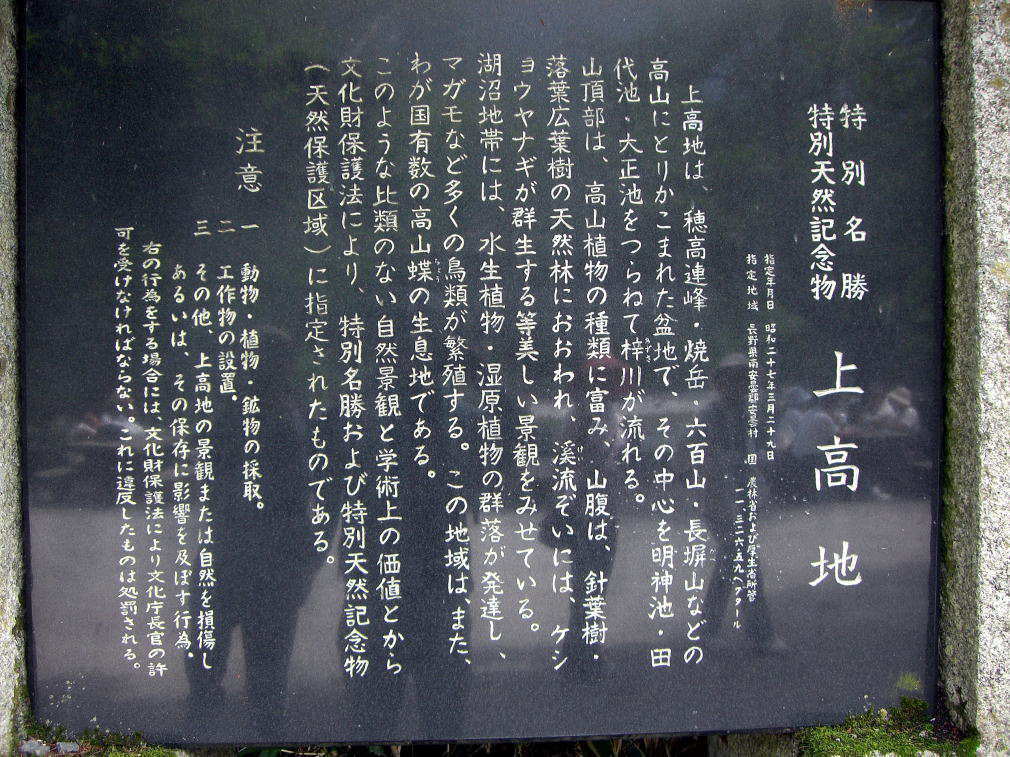 特別名勝
特別天然記念物
上高地
指定年月日 昭和二十七年三月二十九日
指定地域 長野県南安曇郡安曇村 国 農林省および厚生省所管
一一、三二六・五九ヘクタール
上高地は、穂高連峰・焼岳・六百山・長塀山などの
高山にとりかこまれた盆地で、その中心を明神池・田
代池・大正池をつらねて梓川が流れる。
山頂部は、高山植物の種類に富み、山腹は、針葉樹・
落葉広葉樹の天然林におおわれ、渓流ぞいには、ケシ
ョウヤナギが群生する等美しい景観をみせている。
湖沼地帯には、水生植物・湿原植物の群落が発達し、
マガモなど多くの鳥類が繁殖する。この地域は、また、
わが国有数の高山蝶の生息地である。
このような比類のない自然景観と学術上の価値とから
文化財保護法により、特別名勝および特別天然記念物
（天然保護区域）に指定されたものである。
注意
一 動物・植物・鉱物の採取。
二 工作物の設置。
三 その他、上高地の景観または自然を損傷し
あるいは、その保存に影響を及ぼす行為。
右の行為をする場合には、文化財保護法により文化庁長官の許
可を受けなければならない。これに違反したものは処罰される。